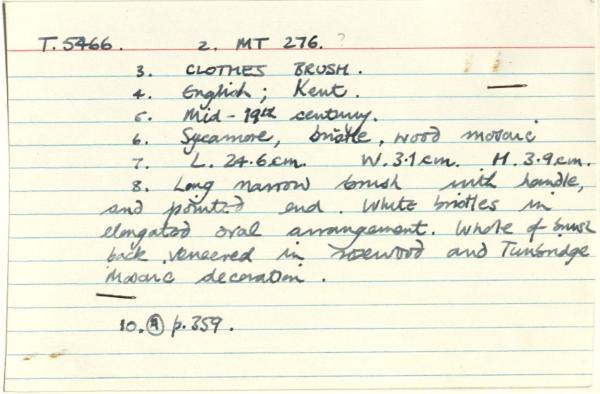 T.5466. 2. MT 276. ?
3. CLOTHES BRUSH.
4. English; Kent.
5. Mid-19th century.
6. Sycamore, bristle, wood mosaic
7. L. 24.6cm. W. 3.1cm. H. 3.9cm.
8. Long narrow brush with handle,
and pointed end. White bristles in
elongated oval arrangement. Whole of brush
back veneered in rosewood and Tunbridge
Mosaic decoration.
10. 9 p.359.